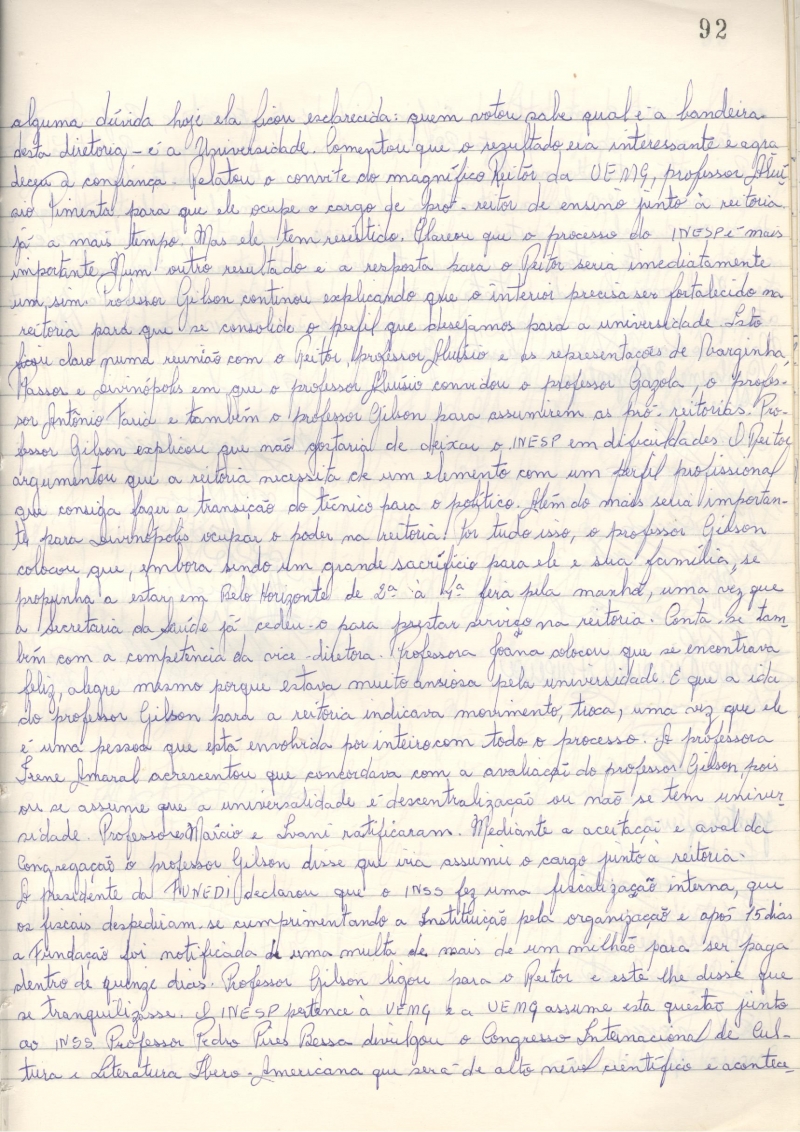 92
alguma dúvida hoje ela ficou esclarecida: quem votou sabe qual é a bandeira
desta diretoria - é a Universidade. Comentou que o resultado era interessante e agra
deceu a confiança. Relatou o convite do magnífico Reitor da UEMG, professor Aluí
sio Pimenta para que ele ocupe o cargo de pró-reitor de ensino junto à reitoria
já a mais tempo. Mas ele tem resistido. Clareou que o processo do INESP é mais
importante. Num outro resultado e a resposta para o Reitor seria imediatamente
um sim. Professor Gilson continou explicando que o interior precisa ser fortalecido na
reitoria para que se consolide o perfil que desejamos para a universidade. Isto
ficou claro numa reunião com o Reitor, professor Aluísio e as representações de Varginha,
Passos e Divinópolis em que o professor Aluísio convidou o professor Gazola, o profes-
sor Antônio Faria e também o professor Gilson para assumirem as pró-reitorias. Pro-
fessor Gilson explicou que não gostaria de deixar o INESP em dificuldades. O Reitor
argumentou que a reitoria necessita de um elemento com um perfil profissional
que consiga fazer a transição do técnico para o político. Além do mais seria importan-
te para Divinópolis ocupar o poder na reitoria. Por tudo isso, o professor Gilson
colocou que, embora sendo um grande sacrifício para ele e sua família, se
propunha a estar em Belo Horizonte de 2ª à 4ª feira pela manhã, uma vez que
a Secretaria da Saúde já cedeu-o para prestar serviço na reitoria. Conta-se tam-
bém com a competência da vice-diretora. Professora Joana colocou que se encontrava
feliz, alegre mesmo porque estava muito ansiosa pela universidade. E que a ida
do professor Gilson para a reitoria indicava movimento, troca, uma vez que ele
é uma pessoa que está envolvida por inteiro com todo o processo. A professora
Irene Amaral acrescentou que concordava com a avaliação do professor Gilson, pois
ou se assume que a universalidade é descentralização ou não se tem univer-
sidade. Professores Márcio e Ivani ratificaram. Mediante a aceitação e aval da
Congregação o professor Gilson disse que iria assumir o cargo junto à reitoria.
O presidente da FUNEDI declarou que o INSS fez uma fiscalização interna, que
os fiscais despediram-se cumprimentando a Instituição pela organização e após 15 dias
a Fundação foi notificada de uma multa de mais de um milhão para ser paga
dentro de quinze dias. Professor Gilson ligou para o Reitor e este lhe disse que
se tranquilizasse. O INESP pertence à UEMG e a UEMG assume esta questão junto
ao INSS. Professor Pedro Pires Bessa divulgou o Congresso Internacional de Cul-
tura e Literatura Ibero-Americana que será de alto nível científico e acontece-